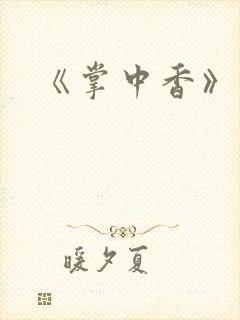 《掌中香》
暖夕夏